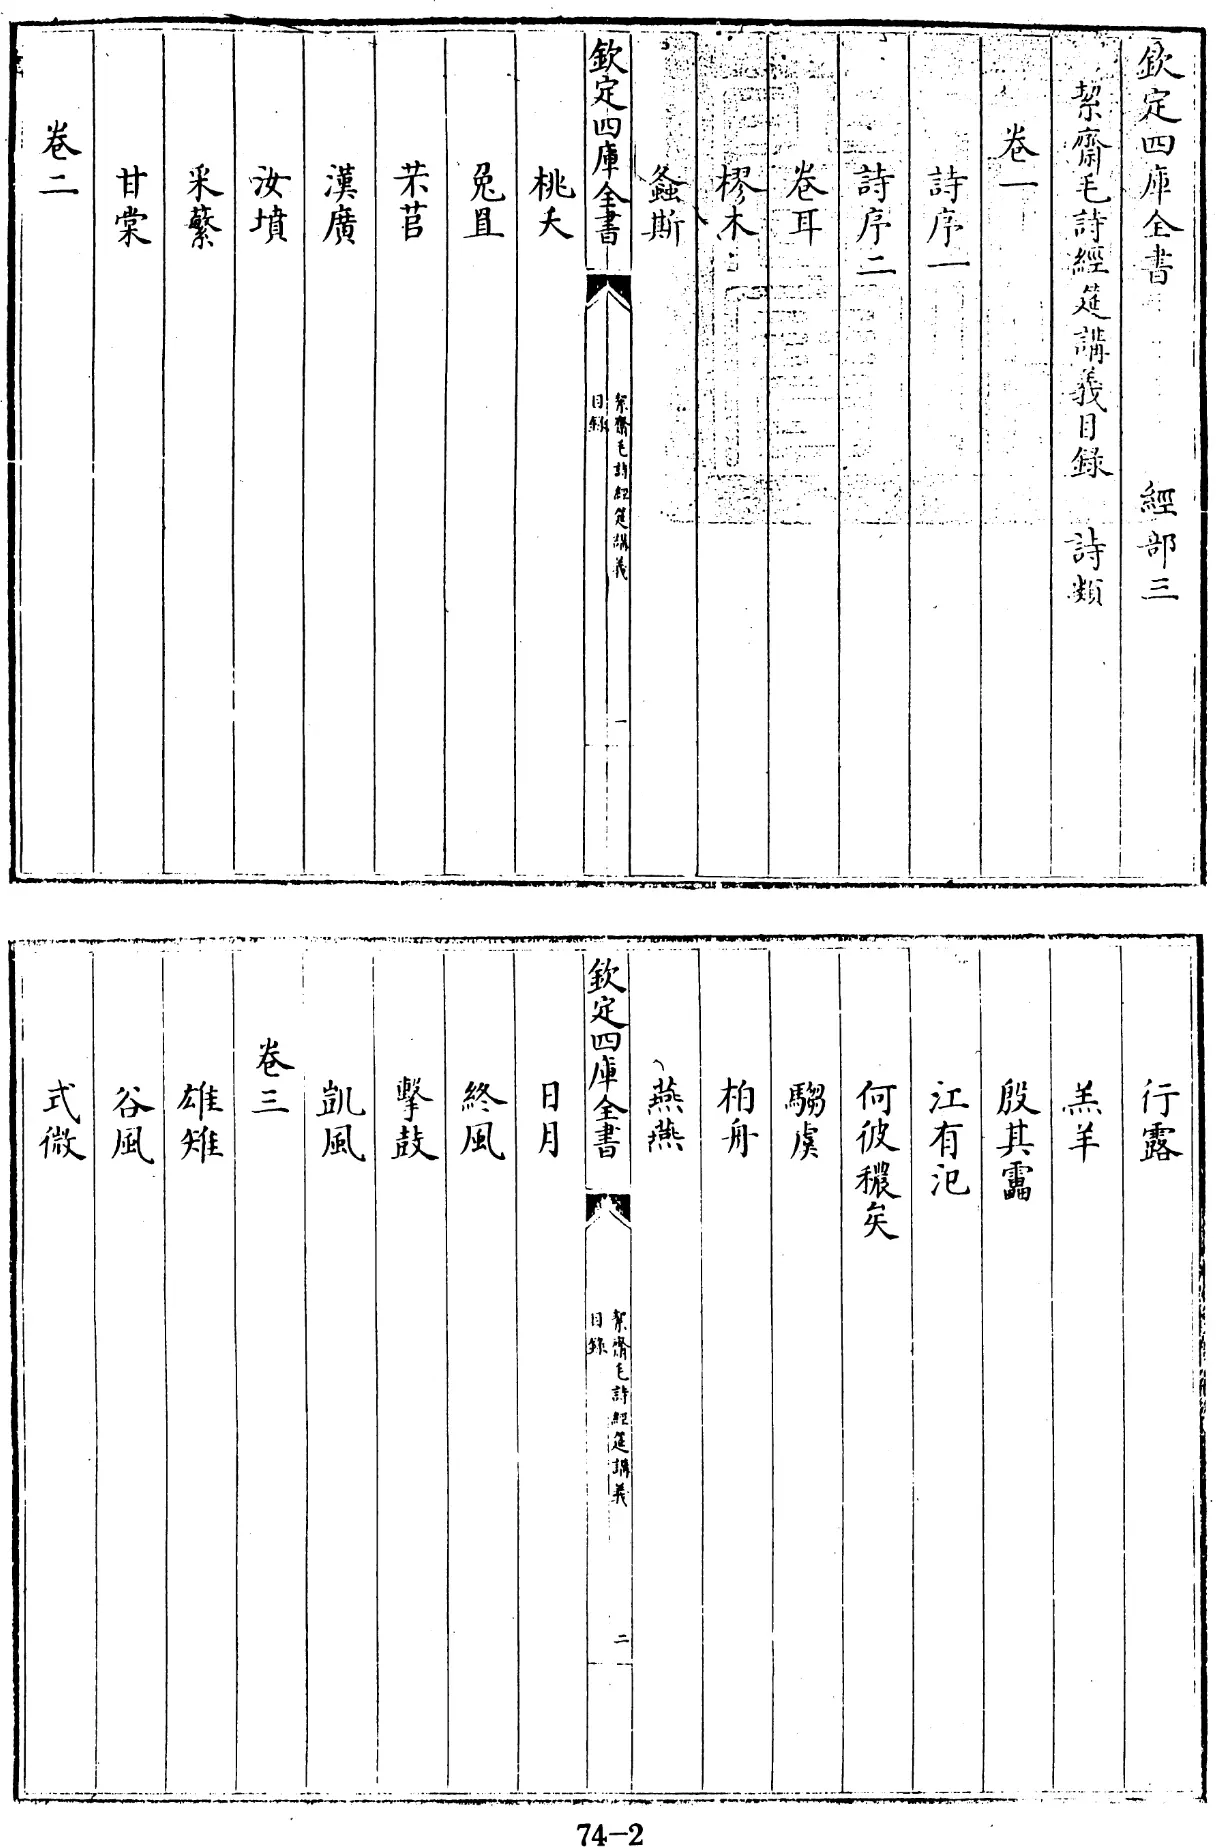 欽定四庫全書 經部三
絜齋毛詩經筵講義目錄 詩類
卷一
詩序一
詩序二
卷耳
樛木
螽斯
欽定四庫全書
絜齋毛詩經筵講義
目錄
一
桃夭
兔罝
芣苢
漢廣
汝墳
采蘩
甘棠
卷二
行露
羔羊
殷其靁
江有汜
何彼穠矣
騶虞
柏舟
燕燕
欽定四庫全書
絜齋毛詩經筵講義
目錄
二
日月
終風
擊鼓
凱風
卷三
雄雉
谷風
式微
74-2